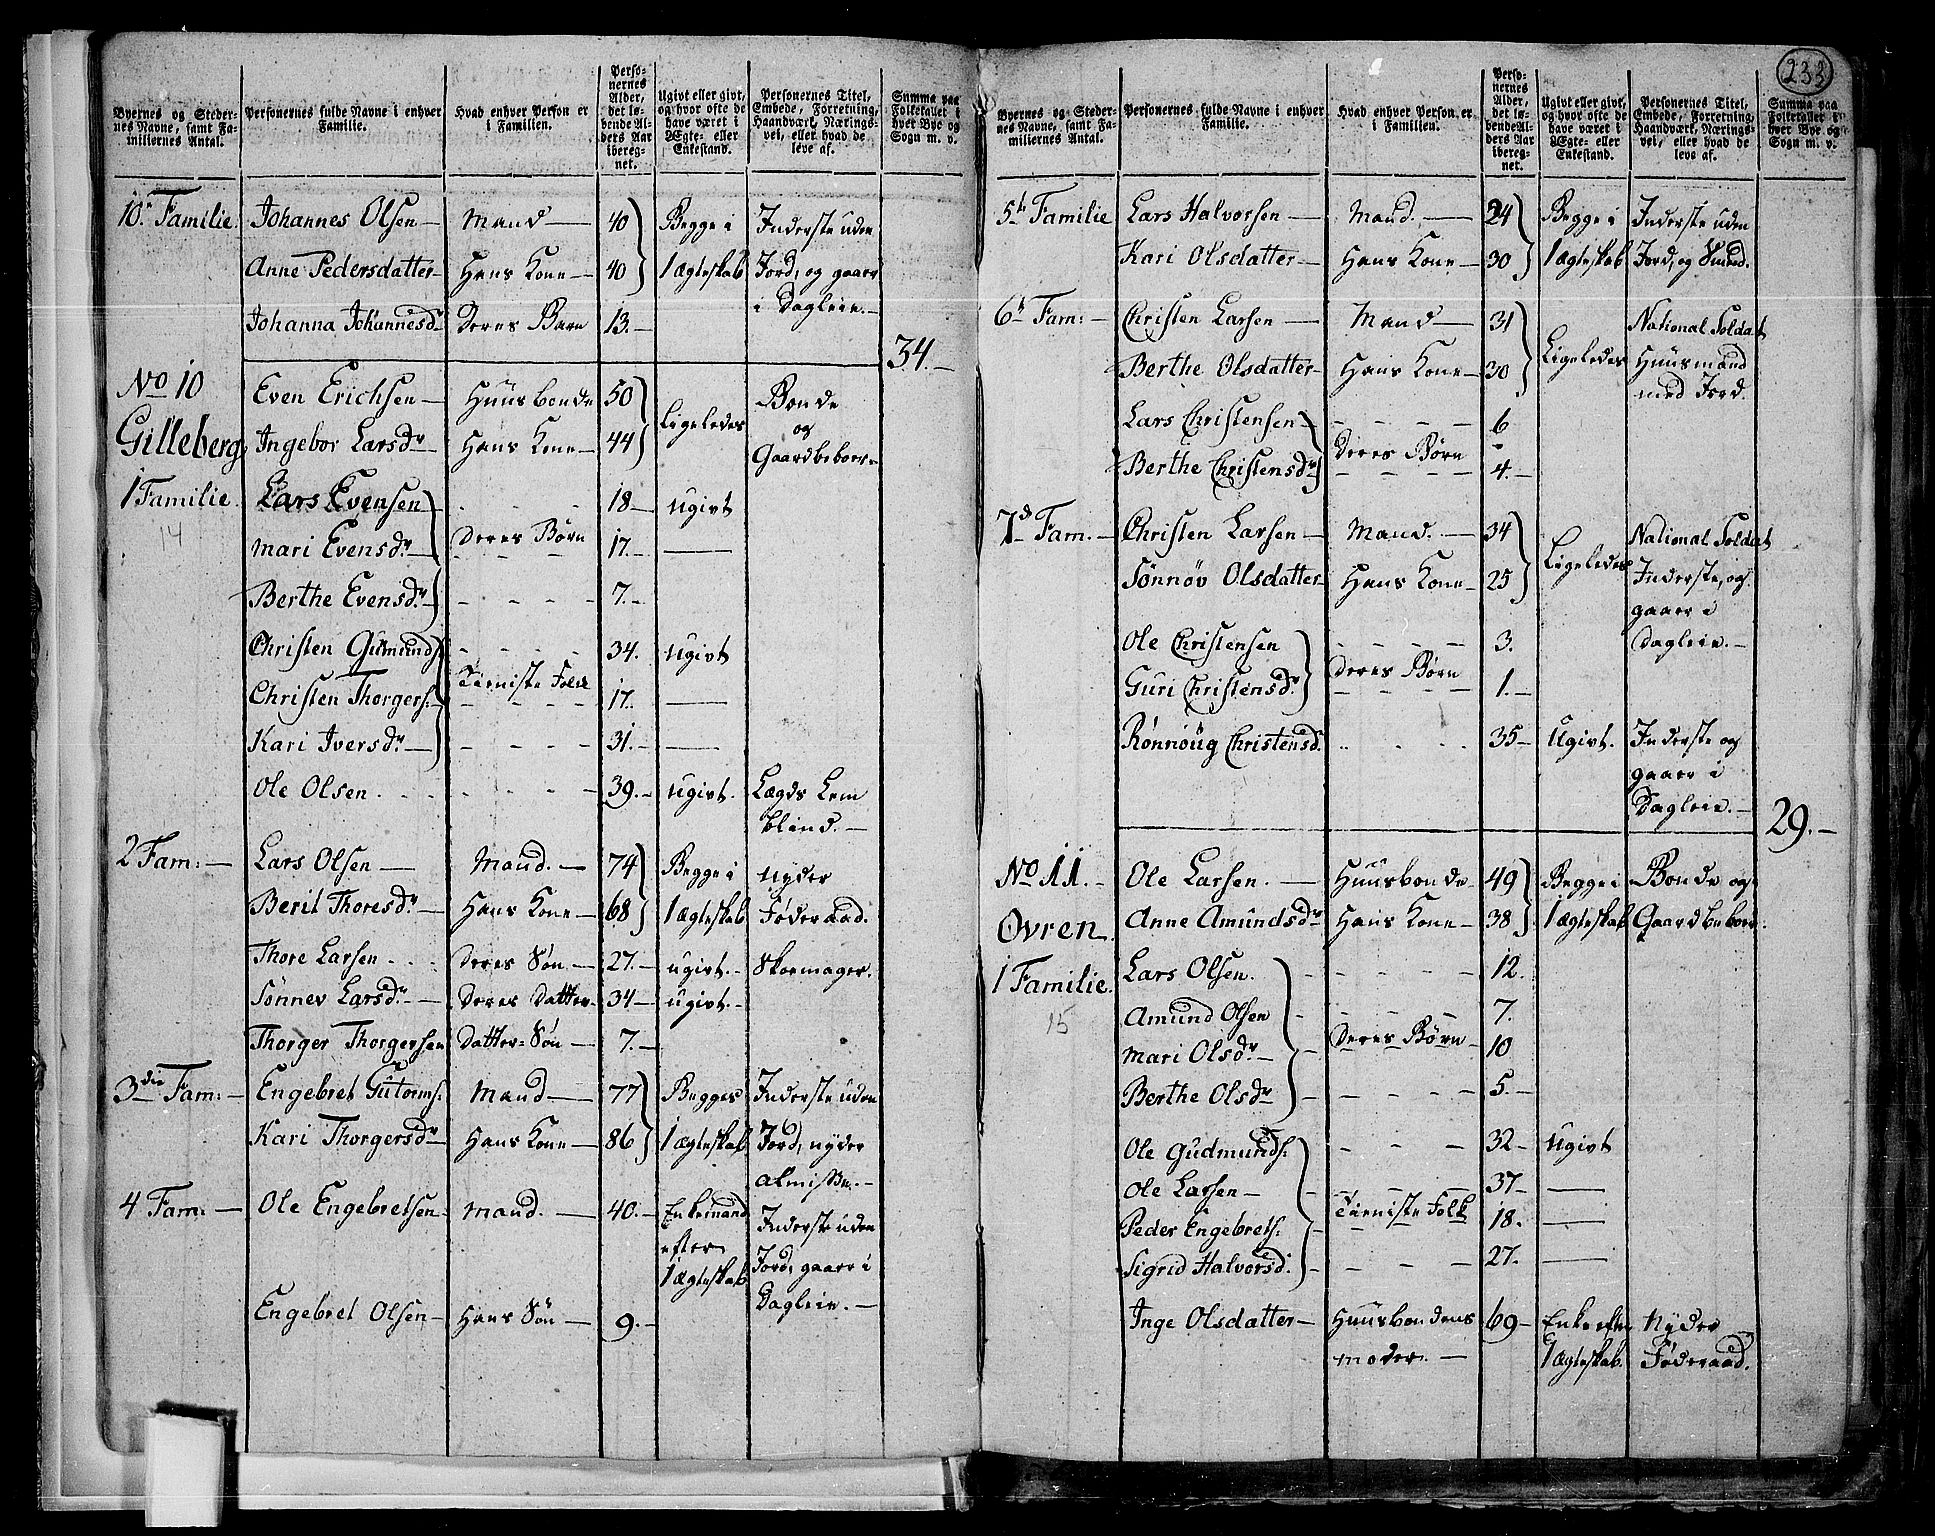 233
Byernes og Steder-
nes Navne, samt Fa-
miliernes Antal.
Personernes fulde Navne i enhver
Familie.
Hvad enhver Person er
i Familien.
Perso-
nernes
Alder,
det lø-
bende Al-
ders Aar
iberegnet.
Ugivt eller givt,
og hvor ofte de
have været i
Ægte- eller
Enkestand.
Personernes Titel,
Embede, Forretning,
Haandværk, Nærings-
vei, eller hvad de
leve af.
Summa paa
Folketallet i
hver Bye og
Sogn m. v.
10. Familie. Johannes Olsen — Mand — 40 Begge i Inderste uden
Anne Pedersdatter — Hans Kone — 40 1 ægteskab Jord, og gaaer
i Dagleie. —
Johanna Johannesdr Deres Barn 13. —
34. —
No 10 Even Erichsen — Huusbonde 50 Ligeledes Bonde
og
Gilleberg Ingebor Larsdr — Hans Kone — 44 Gaardbeboer —
1 Familie. Lars Evensen 18 — ugivt
14
Mari Evensdr — Deres Børn 17. —
Berthe Evensdr — 7. —
Christen Gumunds: 34. ugivt
Christen Thorgers: Tieniste Folk 17. —
Kari Iversdr — 31. —
Ole Olsen 39. — ugivt. Lægds Lem
blind. —
2 Fam: — Lars Olsen — Mand. — 74 Begge i nyder
Berit Thoresdr — Hans Kone — 68 1 ægteskab Føderaad.
Thore Larsen Deres Søn — 27. — ugivt. — Skomager.
Sønnev Larsdr — Deres Datter — 34 — ugivt. —
Thorger Thorgersen Datter-Søn — 7. —
3die Fam: — Engebret Gutorms: Mand — 77 Begges Inderste uden
Kari Thorgersdr — Hans Kone — 86 1 ægteskab Jord, nyder
almisse. —
4 Fam: — Ole Engebretsen Mand. — 40. — Enkemand Inderste uden
efter Jord, gaaer i
1 ægteskab Dagleie. —
Engebret Olsen — Hans Søn — 9. —
Byernes og Steder-
nes Navne, samt Fa-
miliernes Antal.
Personernes fulde Navne i enhver
Familie.
Hvad enhver Person er
i Familien.
Perso-
nernes
Alder,
det lø-
bende Al-
ders Aar
iberegnet.
Ugivt eller givt,
og hvor ofte de
have været i
Ægte- eller
Enkestand.
Personernes Titel,
Embede, Forretning,
Haandværk, Nærings-
vei, eller hvad de
leve af.
Summa paa
Folketallet i
hver Bye og
Sogn m. v.
5te Familie Lars Halvorsen — Mand. — 24 Begge i Inderste uden
Kari Olsdatter — Hans Kone — 30 1 ægteskab Jord, og Smed.
6te Fam: — Christen Larsen — Mand — 31 Ligeledes National Soldat
Berthe Olsdatter — Hans Kone — 30 Huusmand
med Jord.
Lars Christensen 6
Berthe Christensdr Deres Børn 4. —
7de Fam. — Christen Larsen — Mand. — 34 Ligeledes National Soldat
Sønnøv Olsdatter — Hans Kone — 25 Inderste, og
gaaer i
Ole Christensen 3. Dagleie. —
Guri Christensdr Deres Børn 1. —
Rønnøug Christensd. 35 — Ugivt. Inderste og
gaaer i
Dagleie. —
29. —
No 11. — Ole Larsen. — Huusbonde — 49 Begge i Bonde og
Øvren Anne Amundsdr Hans Kone — 38 1 ægteskab Gaardbeboer.
1 Familie. Lars Olsen. 12.
15
Amund Olsen 7.
Mari Olsdr — Deres Børn — 10
Berthe Olsdr 5. —
Ole Gudmunds: 32 — ugivt
Ole Larsen — 37 —
Peder Engebrets: Tieniste Folk 18. —
Sigrid Halvorsd. 27. —
Inge Olsdatter — Huusbondens 69 — Enke efter Nyder
moder. — 1 ægteskab. Føderaad.